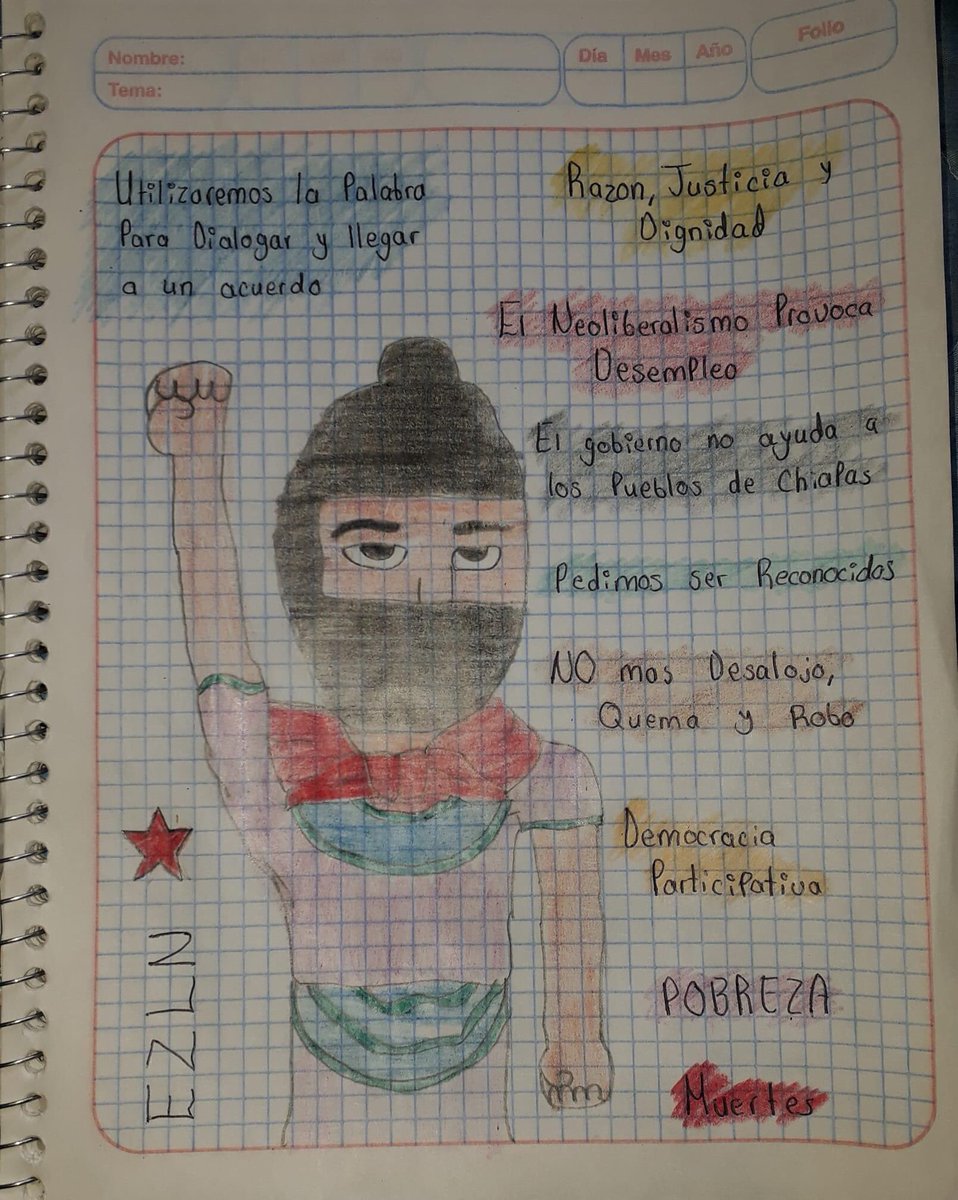 Nombre:
Tema:
Día Mes Año
Folio
Utilizaremos la Palabra
Para Dialogar y llegar
a un acuerdo
Razon, Justicia y
Dignidad
El Neoliberalismo Provoca
Desempleo
El gobierno no ayuda a
los Pueblos de Chiapas
Pedimos ser Reconocidos
NO mas Desalojo,
Quema y Robo
Democracia
Participativa
POBREZA
Muertes
EZLN